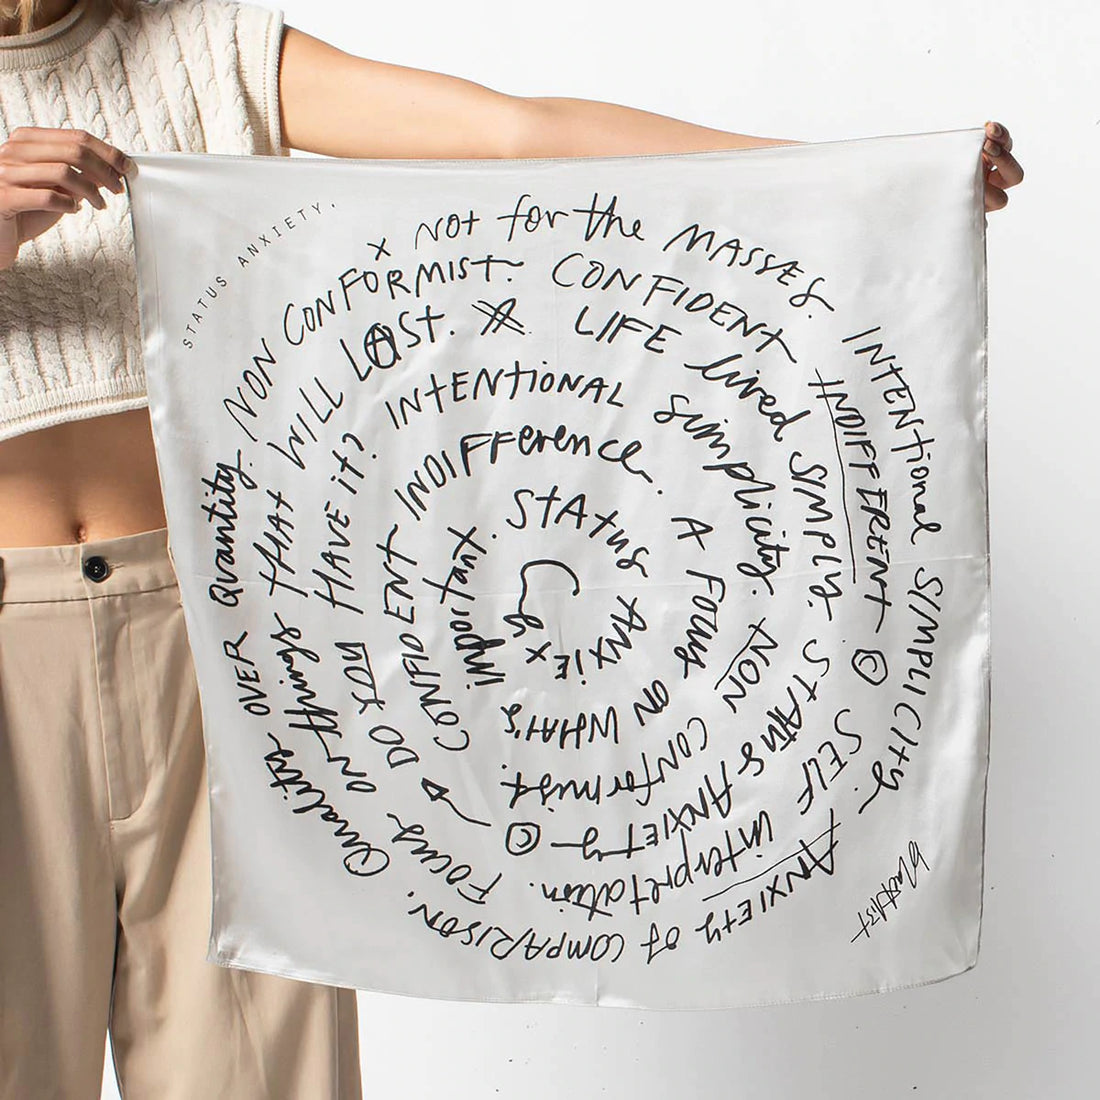 STATUS ANXIETY.
x Not for the MASSES. INTENtional SIMPLICITY. SELF interpretation. Focus ON things THAT WILL LAST.
LIFE lived SIMPLY. STATUS ANXIETY ©
DO YOU HAVE it? INTENTIONAL simplicity. NON CONformist.
CONFIDENT INDIFFerence. A FOCUS ON WHAT'S important.
STATUS ANXIEty x
ANXIETY OF COMPARISON. Quality OVER Quantity. NON CONFORMIST. CONFIDENT INDIFFERENT ©